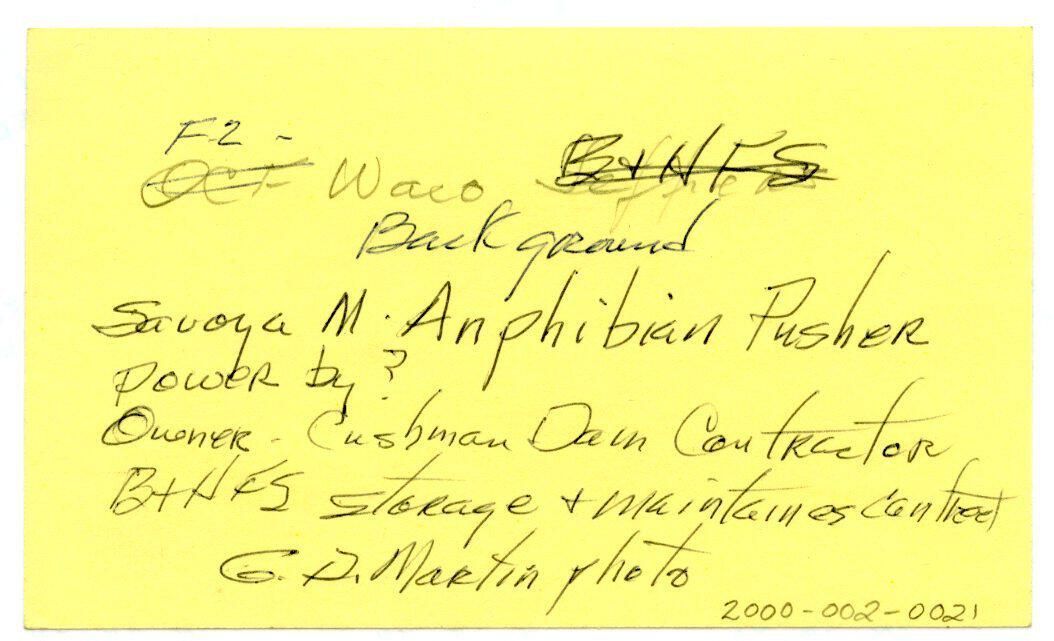 F-2 -
OCT Waco B+H FS
Background
Savoya M. Anphibian Pusher
power by?
Owner - Cushman Dam Contractor
B+H FS storage + maintaines contract
G. D. Martin photo
2000-002-0021